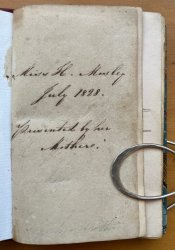 Miss H. Mosley
July 1828.
Presented by her
Mother.